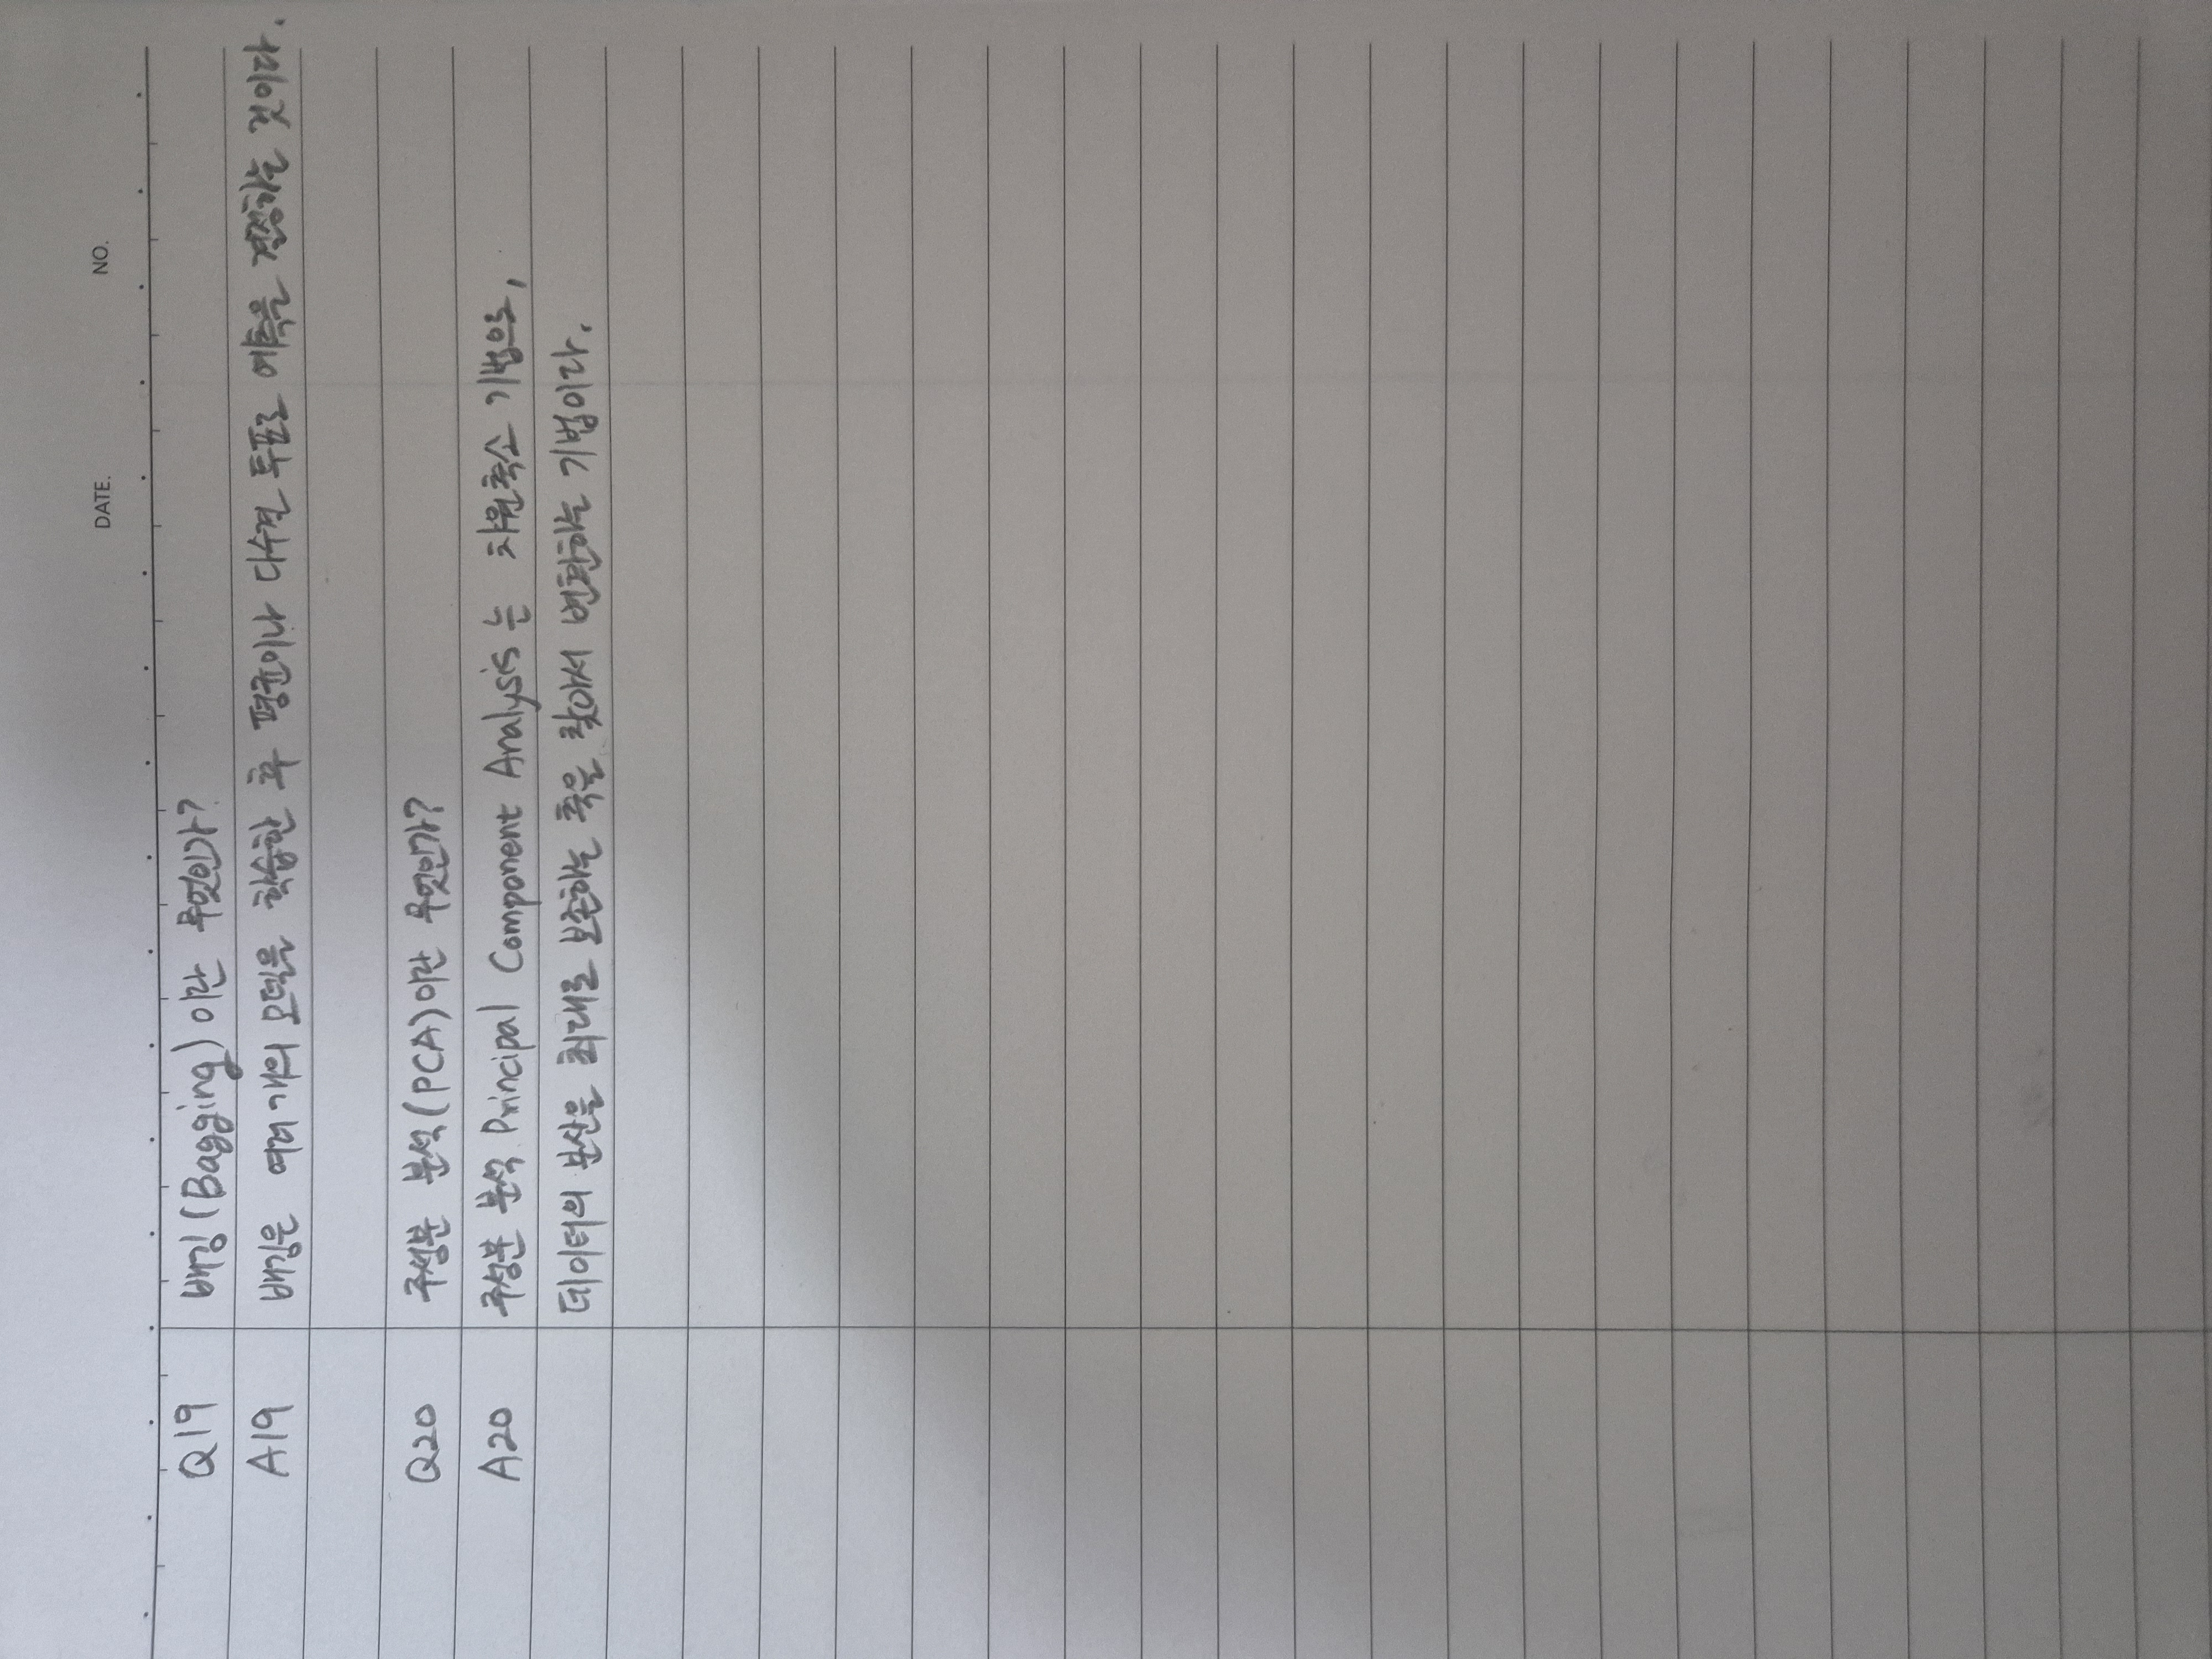 DATE. NO.
Q19 배깅(Bagging)이란 무엇인가?
A19 배깅은 여러 개의 모델을 학습한 후 평균이나 다수결 투표로 예측을 결정하는 것이다.
Q20 주성분 분석(PCA)이란 무엇인가?
A20 주성분 분석 Principal Component Analysis는 차원축소 기법으로,
데이터의 분산을 최대로 보존하는 축을 찾아서 변환하는 기법이다.